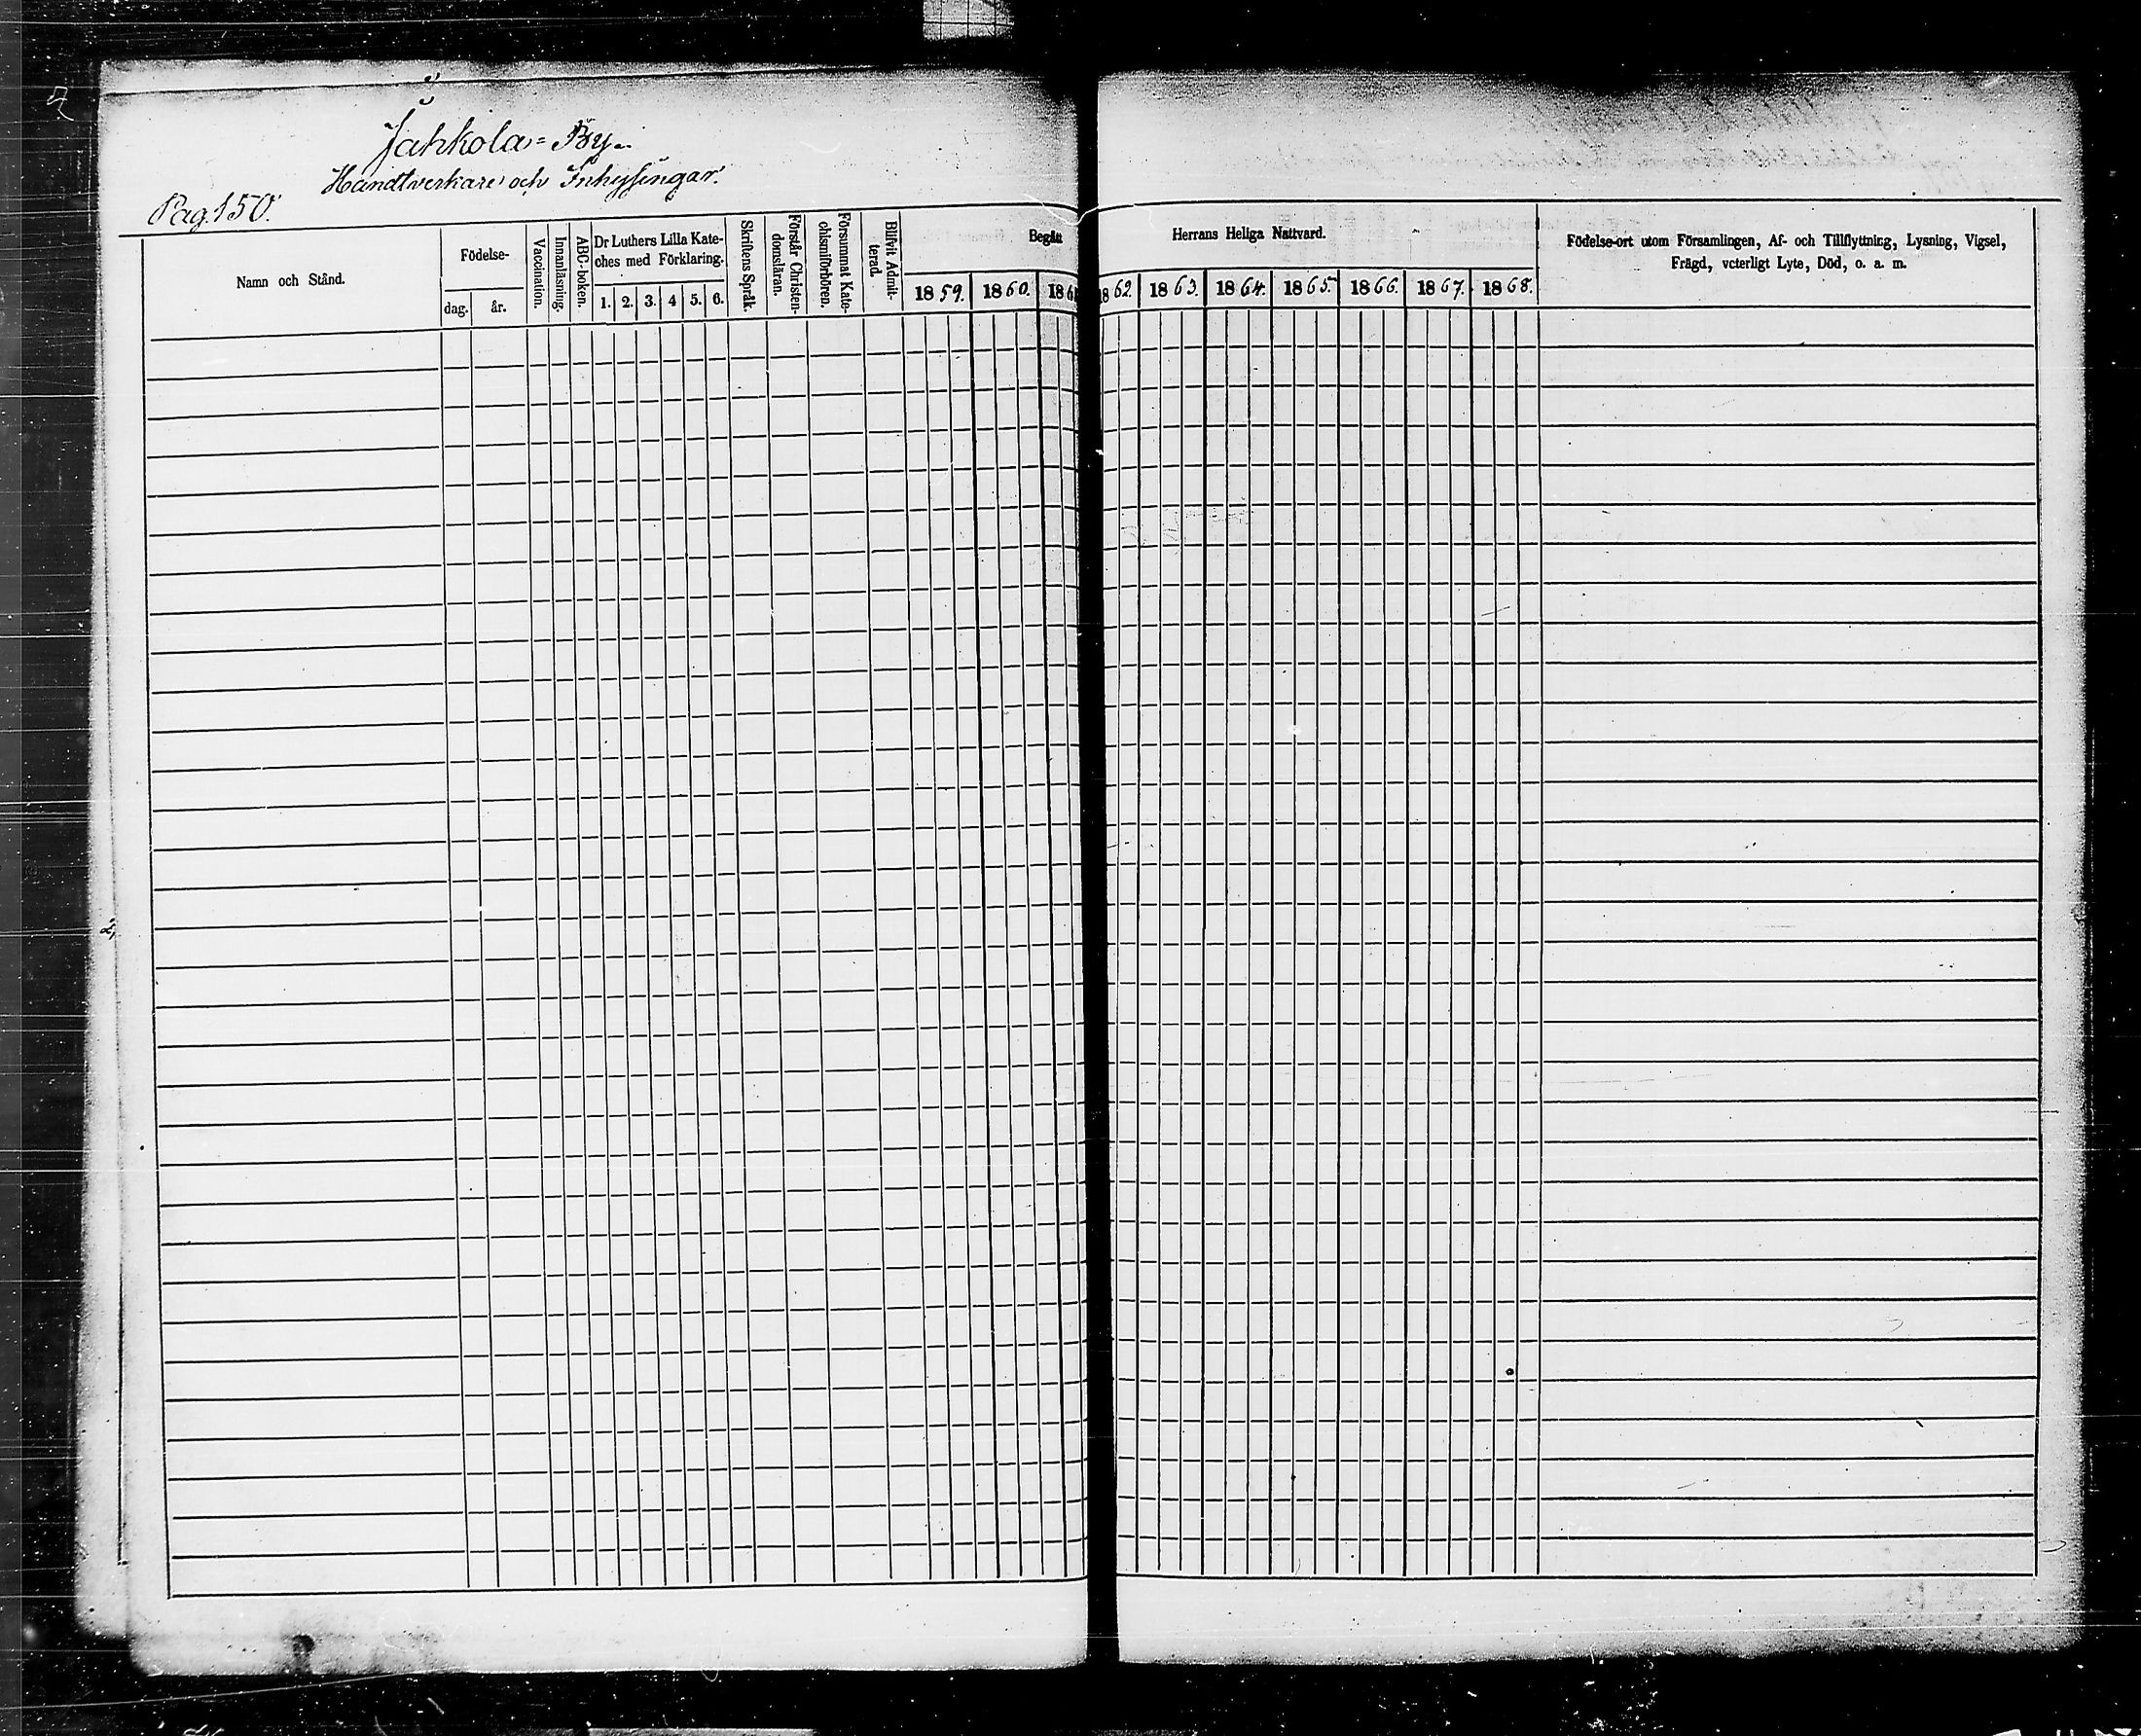 Jahkola=By.
Handtverkare och Inhysingar.
Pag. 150.
Namn och Stånd.
Födelse-
dag.
år.
Vaccination.
Innanläsning.
ABC-boken.
Dr Luthers Lilla Kate-
ches med Förklaring.
1. 2. 3. 4 5. 6.
Skriftens Språk.
Förstår Christen-
domsläran.
Försummat Kate-
chismiförhören.
Blifvit Admit-
terad.
Begått
1859. 1860. 186
Herrans Heliga Nattvard.
1862. 1863. 1864. 1865. 1866. 1867. 1868.
Födelse-ort utom Församlingen, Af- och Tillflyttning, Lysning, Vigsel,
Frägd, veterligt Lyte, Död, o. a. m.